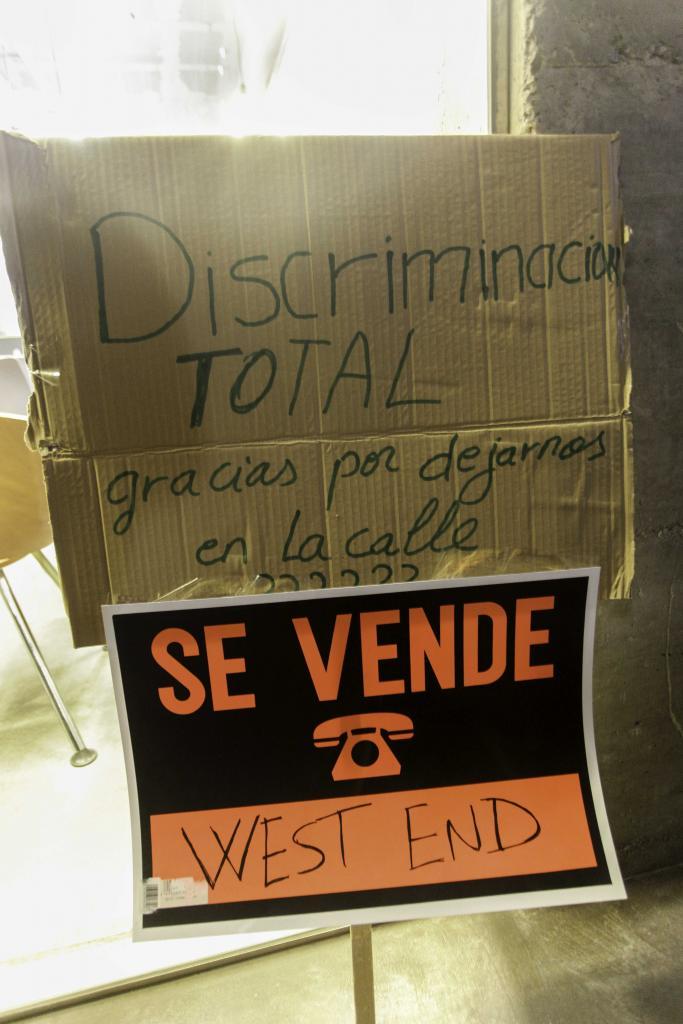 Discriminacion
TOTAL
gracias por dejarnos
en la calle
??????
SE VENDE
WEST END